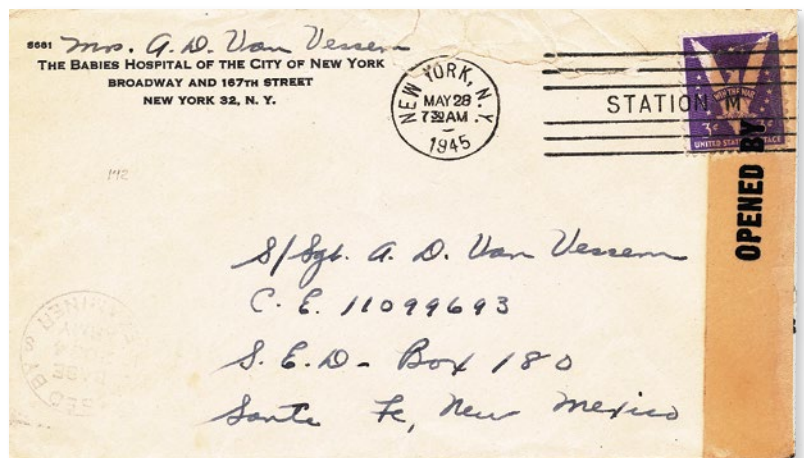 5661 Mrs. A. D. Van Vessem
THE BABIES HOSPITAL OF THE CITY OF NEW YORK
BROADWAY AND 167TH STREET
NEW YORK 32, N. Y.
NEW YORK, N.Y.
MAY 28
7 30 AM
1945
STATION M
WIN THE WAR
3¢ 3¢
UNITED STATES POSTAGE
OPENED BY
172
S/Sgt. A. D. Van Vessem
C. E. 11099693
S. E. D - Box 180
Sante Fe, New Mexico
BASE
ARMY
EXAMINER